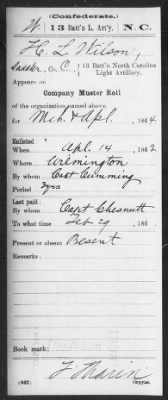 (Confederate.)
W. 13 Batt'n L. Art'y. N. C.
H. L. Wilson
Saddler, Co. C, 13 Batt'n North Carolina
Light Artillery.
Appears on
Company Muster Roll
of the organization named above,
for Mch. & Apl., 1864
Enlisted
When Apl. 14, 1862
Where Wilmington
By whom Capt Cumming
Period 3 yrs
Last paid:
By whom Capt Chesnutt
To what time Feb 29, 186
Present or absent Present
Remarks:
Book mark:
(642) Copyist.